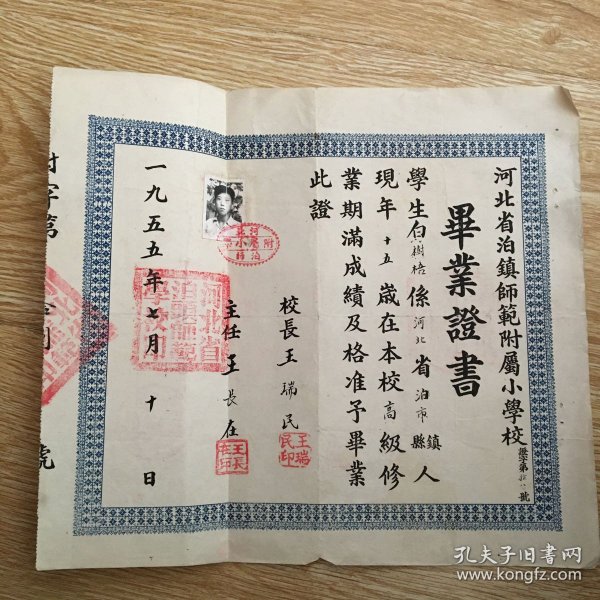 河北省泊鎮師範附屬小學校
畢業證書
學生白樹格係河北省泊市鎮縣人
現年十五歲在本校高級修
業期滿成績及格准予畢業
此證
校長王瑞民
主任王長在
一九五五年七月十日
附字第
號
河北
附屬小學
泊師
王瑞民印
孔夫子旧书网
www.kongfz.com